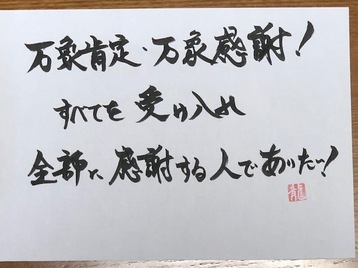 万象肯定・万象感謝!
すべてを受け入れ
全部に感謝する人でありたい!
龍